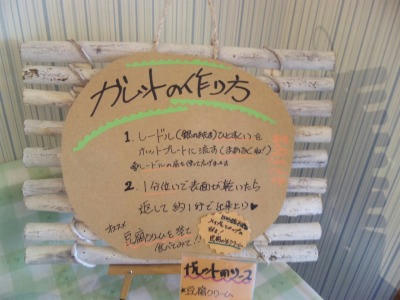 ガレットの作り方
1. レードル(銀のお玉)ひとすくいを
ホットプレートに流す(まあるくね!)
レードルの底を使って広げます
2. 1分位いで表面が乾いたら
返して約1分で出来上り♥
オススメ
豆腐クリームを塗って
食べてみて!!
ガレット用ソース
豆腐クリーム